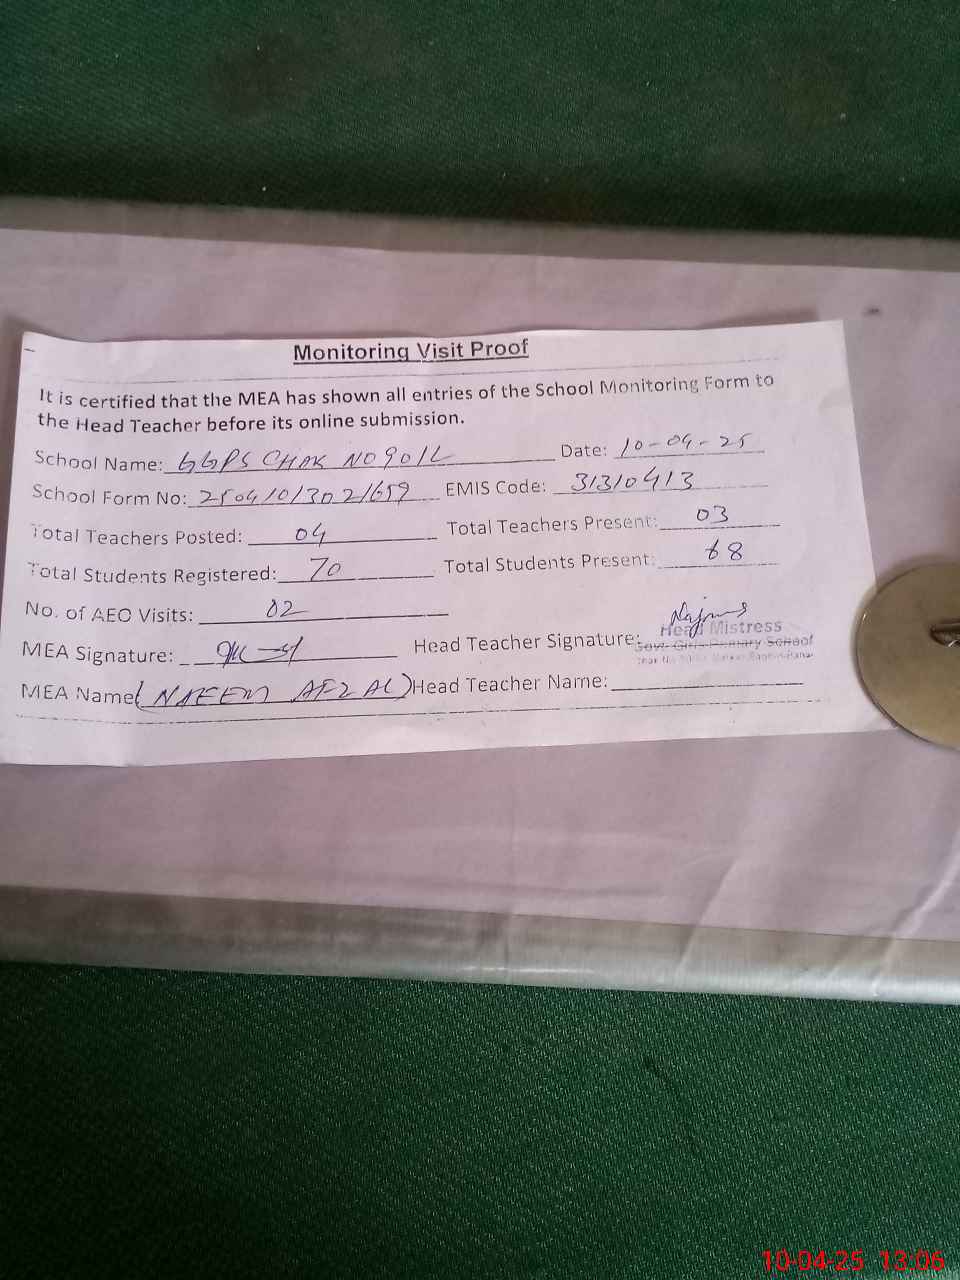 Monitoring Visit Proof
It is certified that the MEA has shown all entries of the School Monitoring Form to
the Head Teacher before its online submission.
School Name: GGPS CHAK NO 90/L Date: 10-04-25
School Form No: 250410/302/659 EMIS Code: 31310413
Total Teachers Posted: 04 Total Teachers Present: 03
Total Students Registered: 70 Total Students Present: 68
No. of AEO Visits: 02
MEA Signature: Head Teacher Signature:
Head Mistress
Govt. Girls Primary School
MEA Name (NAEEM AFZAL) Head Teacher Name:
10-04-25 13:06